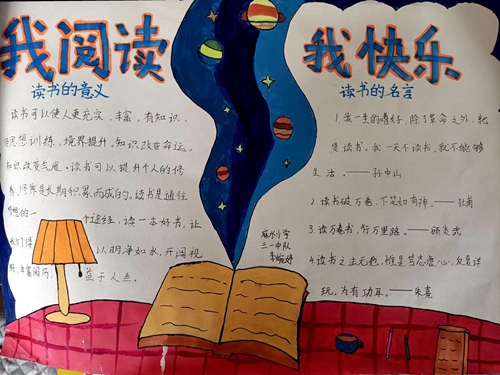 我阅读
我快乐
读书的意义
读书可以使人更充实，丰富，有知识，
思想训练，境界提升，知识改变命运，
知识改变气质。读书可以提升个人的修
养，修养是长期积累而成的。读书是通往
梦想的一个途径，读一本好书，让
我们得以明净如水，开阔视
野，丰富阅历，益于人生。
读书的名言
1.我一生的嗜好，除了革命之外，就
是读书。我一天不读书，就不能够
生活。——孙中山
2.读书破万卷，下笔如有神。——杜甫
3.读万卷书，行万里路。——顾炎武
4.读书之法无他，惟是笃志虚心，反复详
玩，为有功耳。——朱熹
小学
三一中队